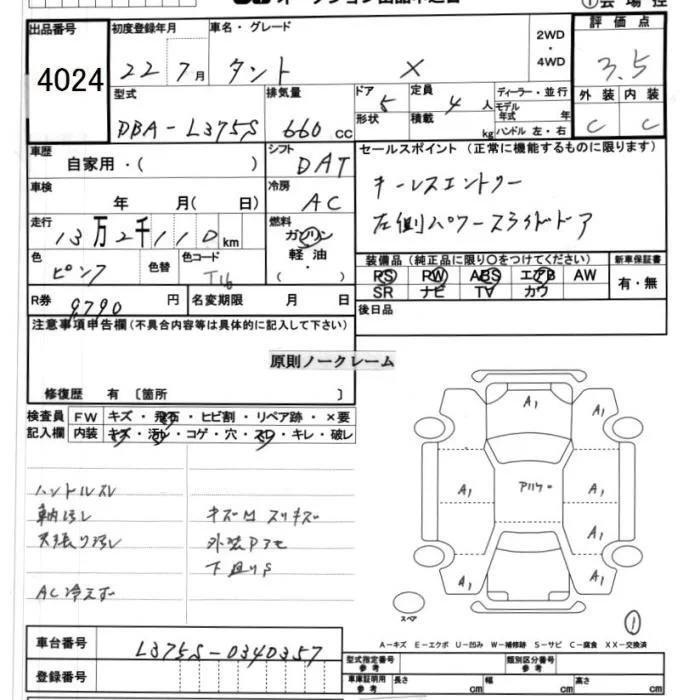 出品番号 初度登録年月 車名・グレード 2WD・4WD 評価点
4024 22年 7月 タント X 3.5
型式 排気量 ドア 定員 ディーラー・並行 外装 内装
DBA-L375S 660cc 5 4人 モデル年式 年 C C
形状 積載 kg ハンドル 左・右
車歴 シフト セールスポイント(正常に機能するものに限ります)
自家用・( ) DAT
キーレスエントリー
車検 冷房
年 月( 日) AC
左側パワースライドドア
走行 燃料
13万2千110km ガソリン
軽油・( )
色 色替 色コード
ピンク T16
装備品(純正品に限り○をつけてください) 新車保証書
PS PW ABS エアB AW 有・無
SR ナビ TV カワ
R券 9790円 名変期限 月 日 後日品
注意事項申告欄(不具合内容等は具体的に記入して下さい)
原則ノークレーム
修復歴 有 〔箇所 〕
検査員記入欄 FW キズ・飛石・ヒビ割・リペア跡・×要
内装 キズ・汚れ・コゲ・穴・スレ・キレ・破レ
ハンドルスレ
車内汚レ
天張り汚レ
AC冷えず
下廻りS
A1 A1
A1 A1
A1
A1 A1
スペア
①
A-キズ E-エクボ U-凹み W-補修跡 S-サビ C-腐食 XX-交換済
車台番号 L375S-0340357
登録番号
型式指定番号 参考 類別区分番号 参考
車庫証明用 参考 長さ cm 幅 cm 高さ cm